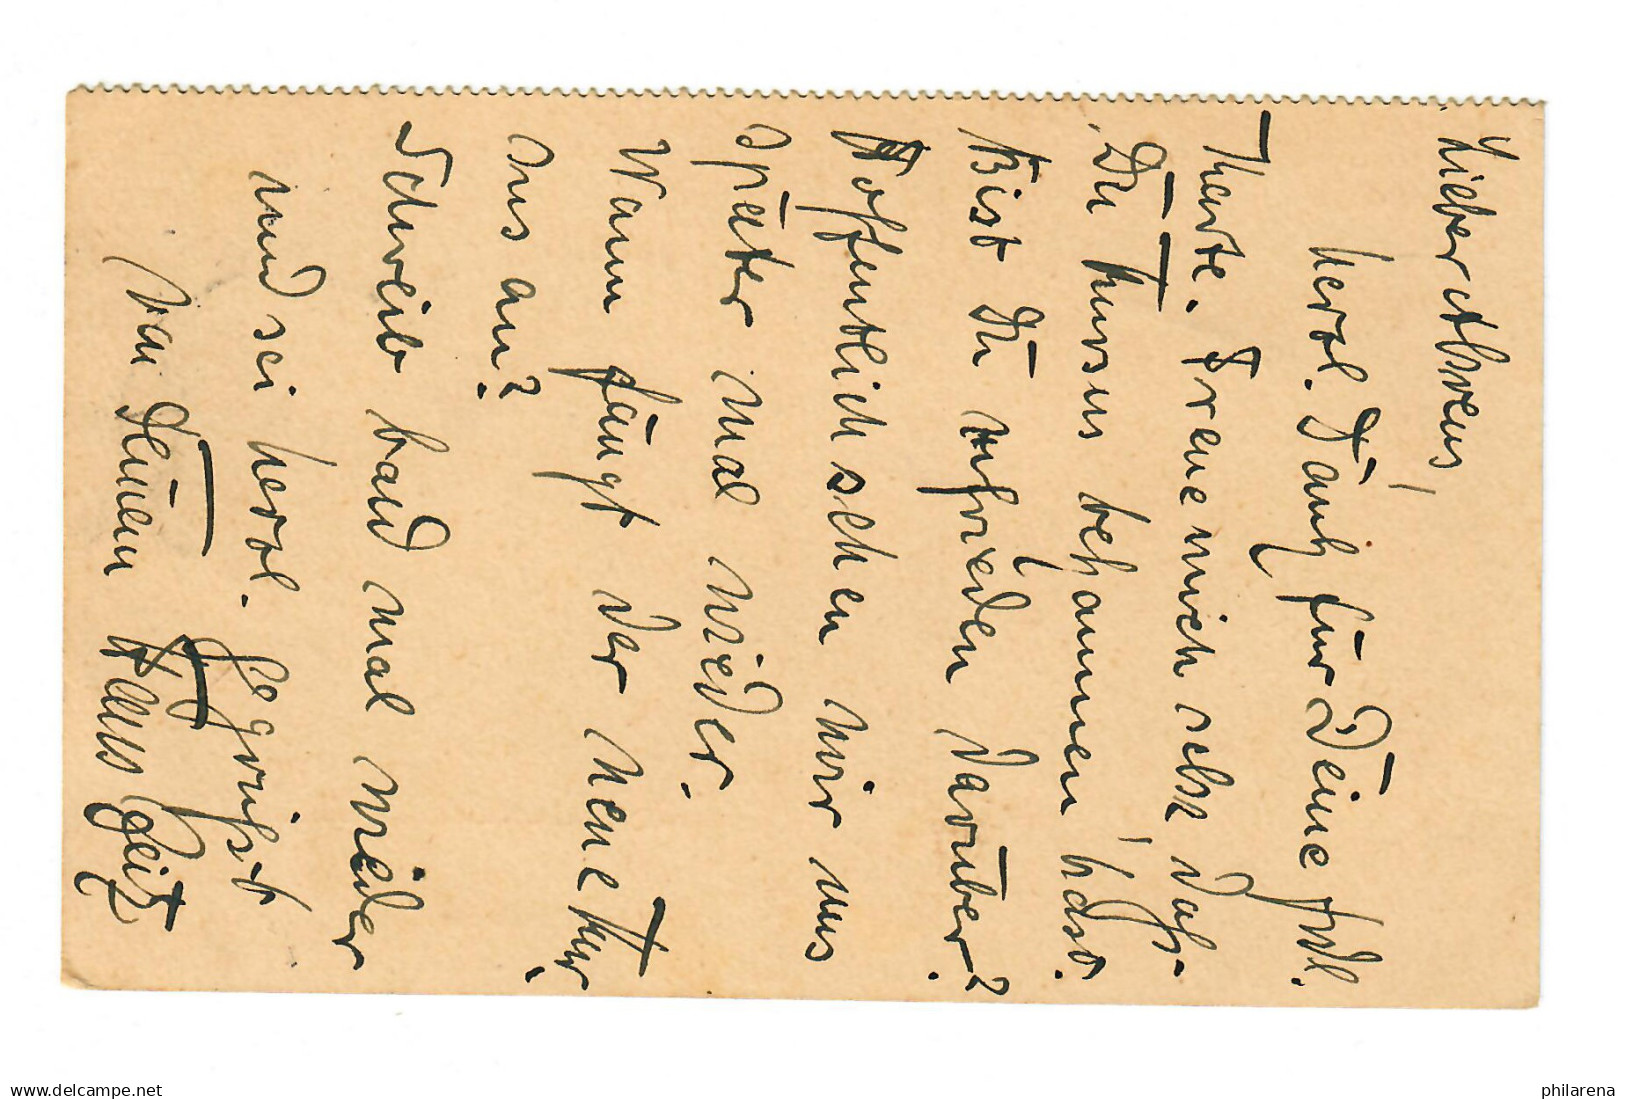 Lieber Ahrens!
herzl. Dank für Deine frdl.
Karte. Freue mich sehr daß
Du Kursus bekommen hast.
Bist Du zufrieden darüber?
Hoffentlich sehen wir uns
später mal wieder.
Wann fängt der neue Kur-
sus an?
Schreib bald mal wieder
und sei herzl. gegrüßt
von Deinem Klaus
delcampe.net
philarena